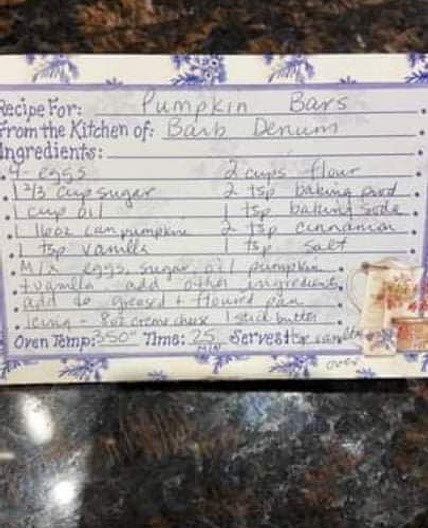 Recipe For: Pumpkin Bars
From the Kitchen of: Barb Denum
Ingredients:
4 - eggs 2 cups flour
1 2/3 cup sugar 2 tsp baking powd
1 cup oil 1 tsp baking soda
1 16oz can pumpkin 2 tsp cinnamon
1 tsp vanilla 1 tsp salt
Mix eggs, sugar, oil pumpkin
+ vanilla add other ingredients
add to greased + floured pan
Icing - 8oz creme chese 1 stick butter
Oven Temp: 350° Time: 25 MIN Serves: 1 tsp vanilla
over